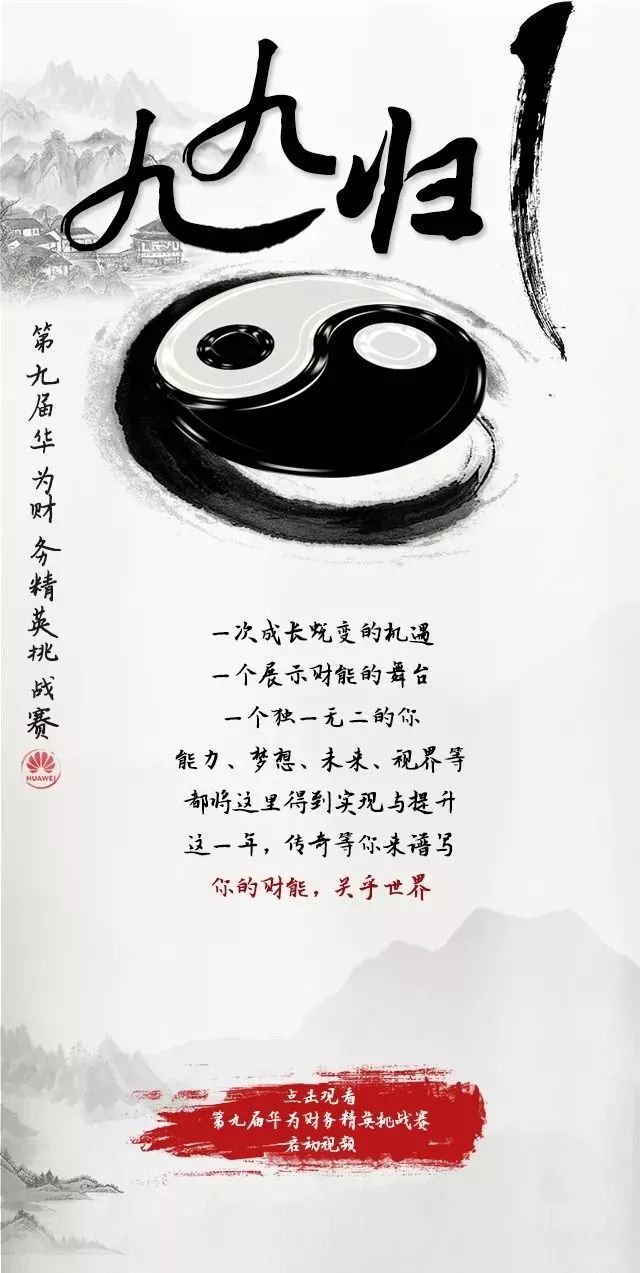 九九归1
第九届华为财务精英挑战赛
HUAWEI
一次成长蜕变的机遇
一个展示财能的舞台
一个独一无二的你
能力、梦想、未来、视界等
都将这里得到实现与提升
这一年，传奇等你来谱写
你的财能，关乎世界
点击观看
第九届华为财务精英挑战赛
启动视频